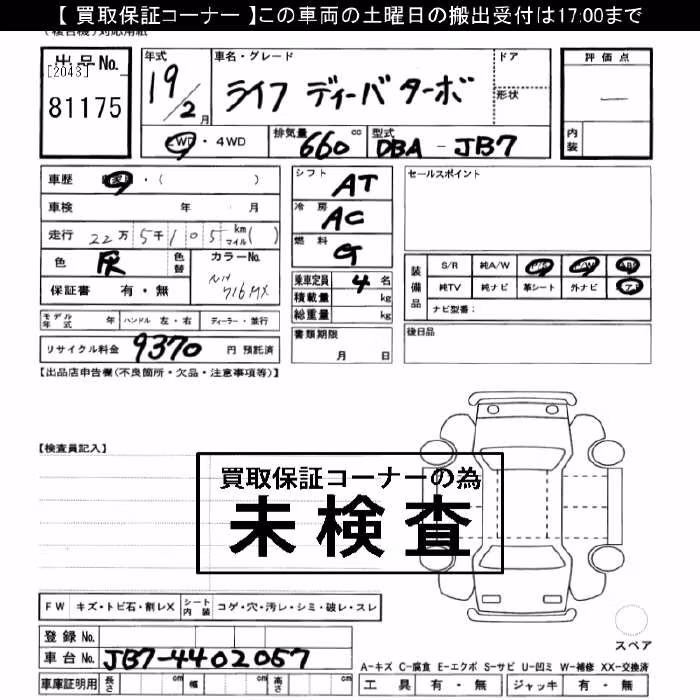 【 買取保証コーナー 】この車両の土曜日の搬出受付は17:00まで
出品No.
[2043]
81175
年式
19/2月
車名・グレード
ライフ ディーバ ターボ
ドア
形状
評価点
—
内装
2WD・4WD
排気量 660 cc
型式 DBA - JB7
車歴 自家用・( )
車検 年 月
走行 22万5千105 km マイル( )
色 灰
色替
カラーNo.
NH
716MX
保証書 有・無
シフト AT
冷房 AC
燃料 G
乗車定員 4名
積載量 kg
総重量 kg
書類期限
月 日
セールスポイント
装備品
S/R 純A/W P/S P/W ABS
純TV 純ナビ 革シート 外ナビ エアB
ナビ型番:
後日品
モデル年式 年
ハンドル 左・右
ディーラー・並行
リサイクル料金 9370 円 預託済
【出品店申告欄(不良箇所・欠品・注意事項等)】
【検査員記入】
買取保証コーナーの為
未検査
FW キズ・トビ石・割レX
シート内装 コゲ・穴・汚レ・シミ・破レ・スレ
登録No.
車台No. JB7-4402057
車庫証明用 長さ cm 幅 cm 高さ cm
スペア
A-キズ C-腐食 E-エクボ S-サビ U-凹ミ W-補修 XX-交換済
工具 有・無 ジャッキ 有・無